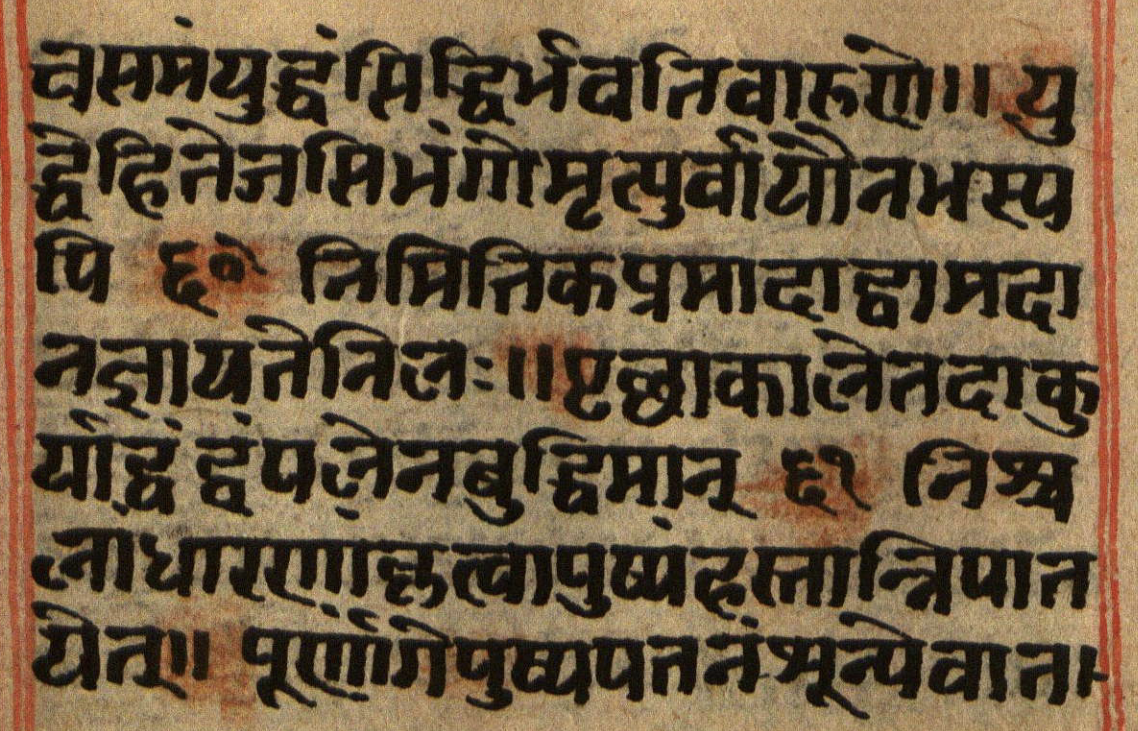 वसमंयुद्धंसिद्धिर्भवतिवारुणे॥ यु
द्धेहितेजसिभंगोमृत्युर्वायौनभस्य
पि ६० निमित्तिकप्रमादाद्वामदा
नज्ञायतेनिलः॥पृछाकालेतदाकु
र्याद्वं द्वंपलेनबुद्धिमान् ६१ निश्च
लाधारणांकृत्वापुष्पंहस्तान्निपात
येत्॥ पूर्णांगेपुष्पपतनंशून्येवात।